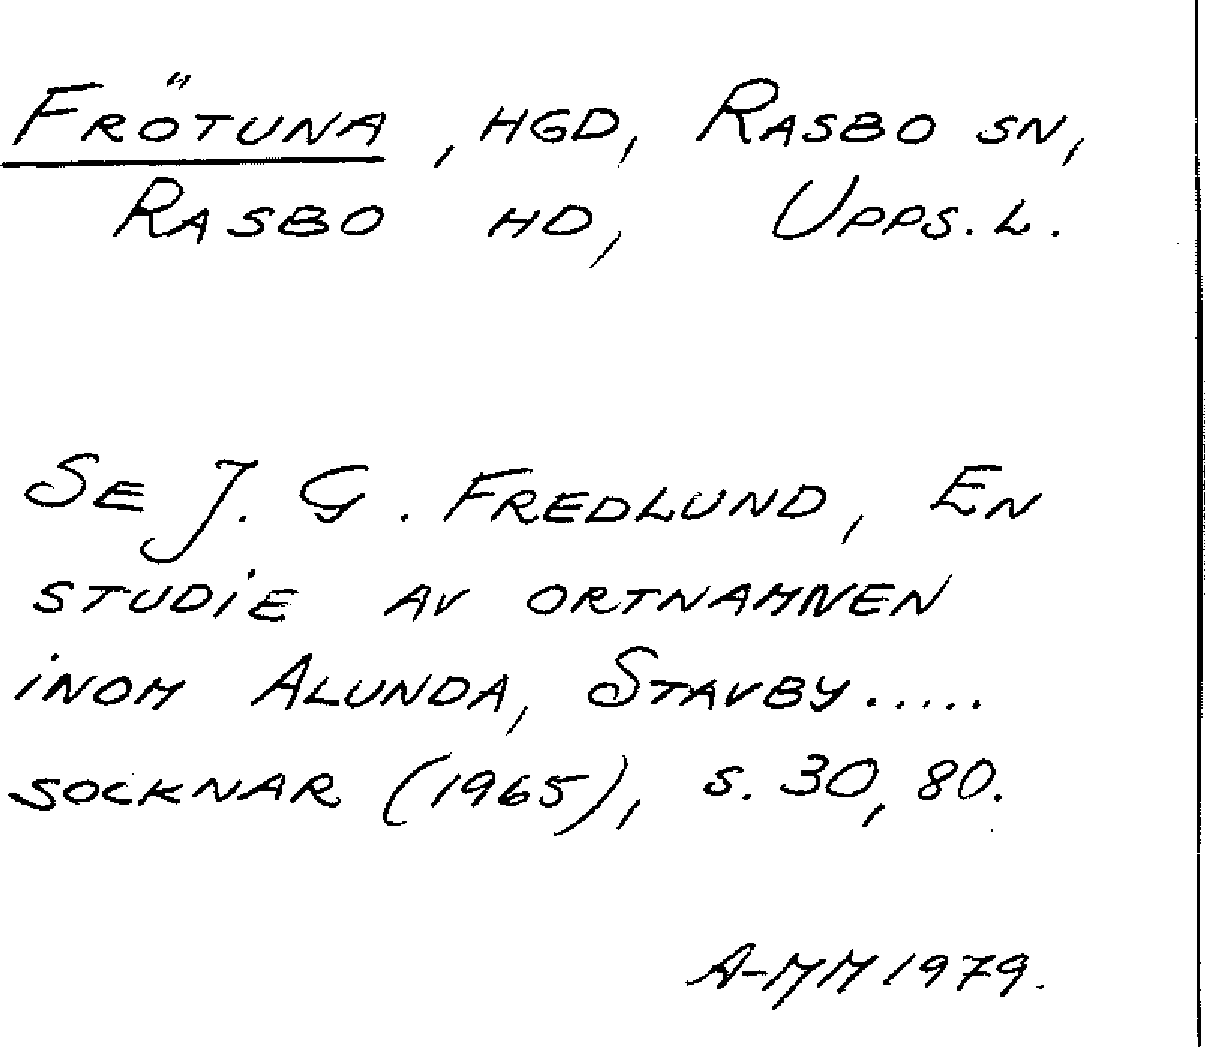 FRÖTUNA, HGD, RASBO SN,
RASBO HD, UPPS. L.
SE J. G. FREDLUND, EN
STUDIE AV ORTNAMNEN
INOM ALUNDA, STAVBY.....
SOCKNAR (1965), S. 30, 80.
A-MM 1979.